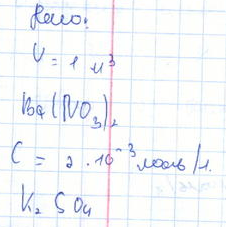 Дано:
V = 1 м³
Ba(NO₃)₂
C = 2 · 10⁻³ моль/л.
K₂SO₄